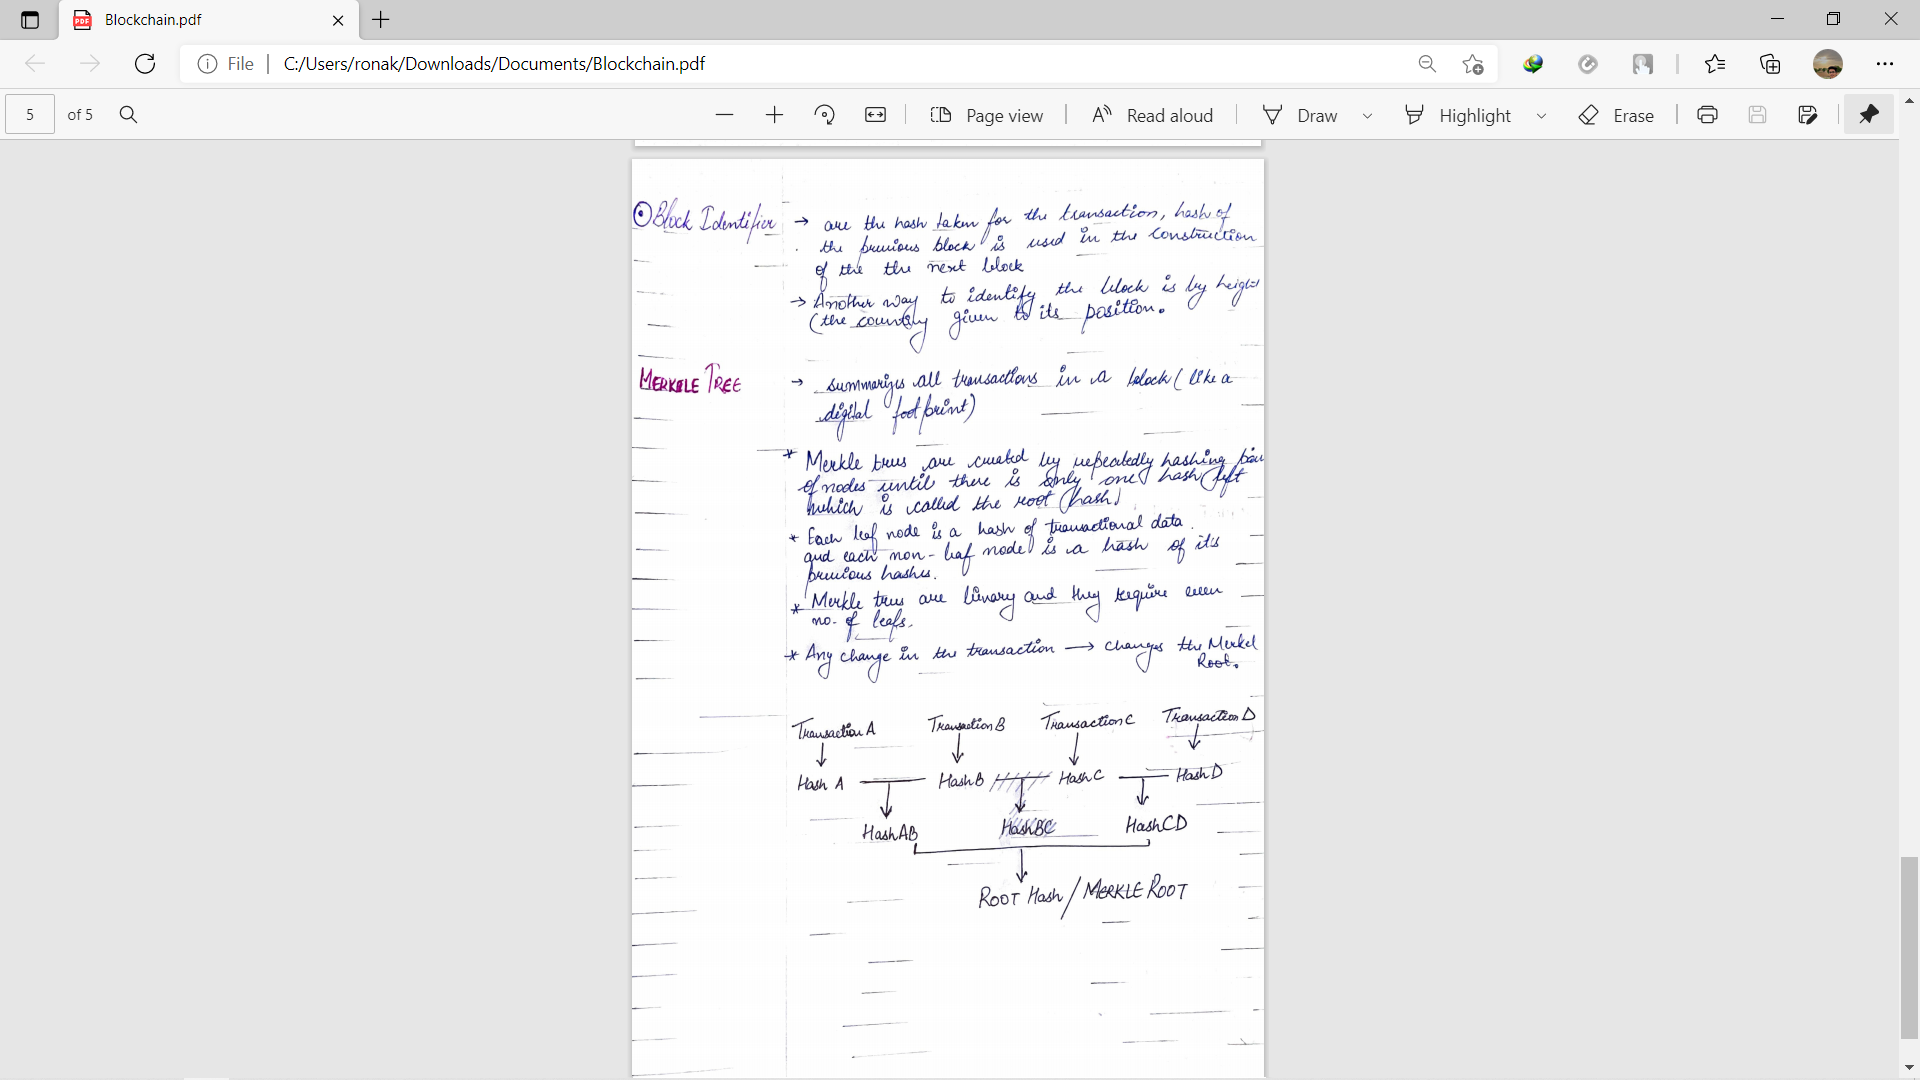 Blockchain.pdf
File
C:/Users/ronak/Downloads/Documents/Blockchain.pdf
5 of 5
Page view
Read aloud
Draw
Highlight
Erase
Block Identifier → are the hash taken for the transaction, hash of
the previous block is used in the construction
of the the next block
→ Another way to identify the block is by height
(the given to its position.
MERKELE TREE → summarizes all transactions in a block (like a
digital footprint)
* Merkle trees are created by repeatedly hashing pair
of nodes until there is only one hash left
which is called the root (hash)
* Each leaf node is a hash of transactional data
and each non-leaf node is a hash of it's
previous hashes.
* Merkle trees are binary and they require even
no. of leafs.
* Any change in the transaction → changes the Merkel
Root.
Transaction A Transaction B Transaction C Transaction D
Hash A Hash B Hash C Hash D
Hash AB Hash BC Hash CD
ROOT Hash / MERKLE ROOT